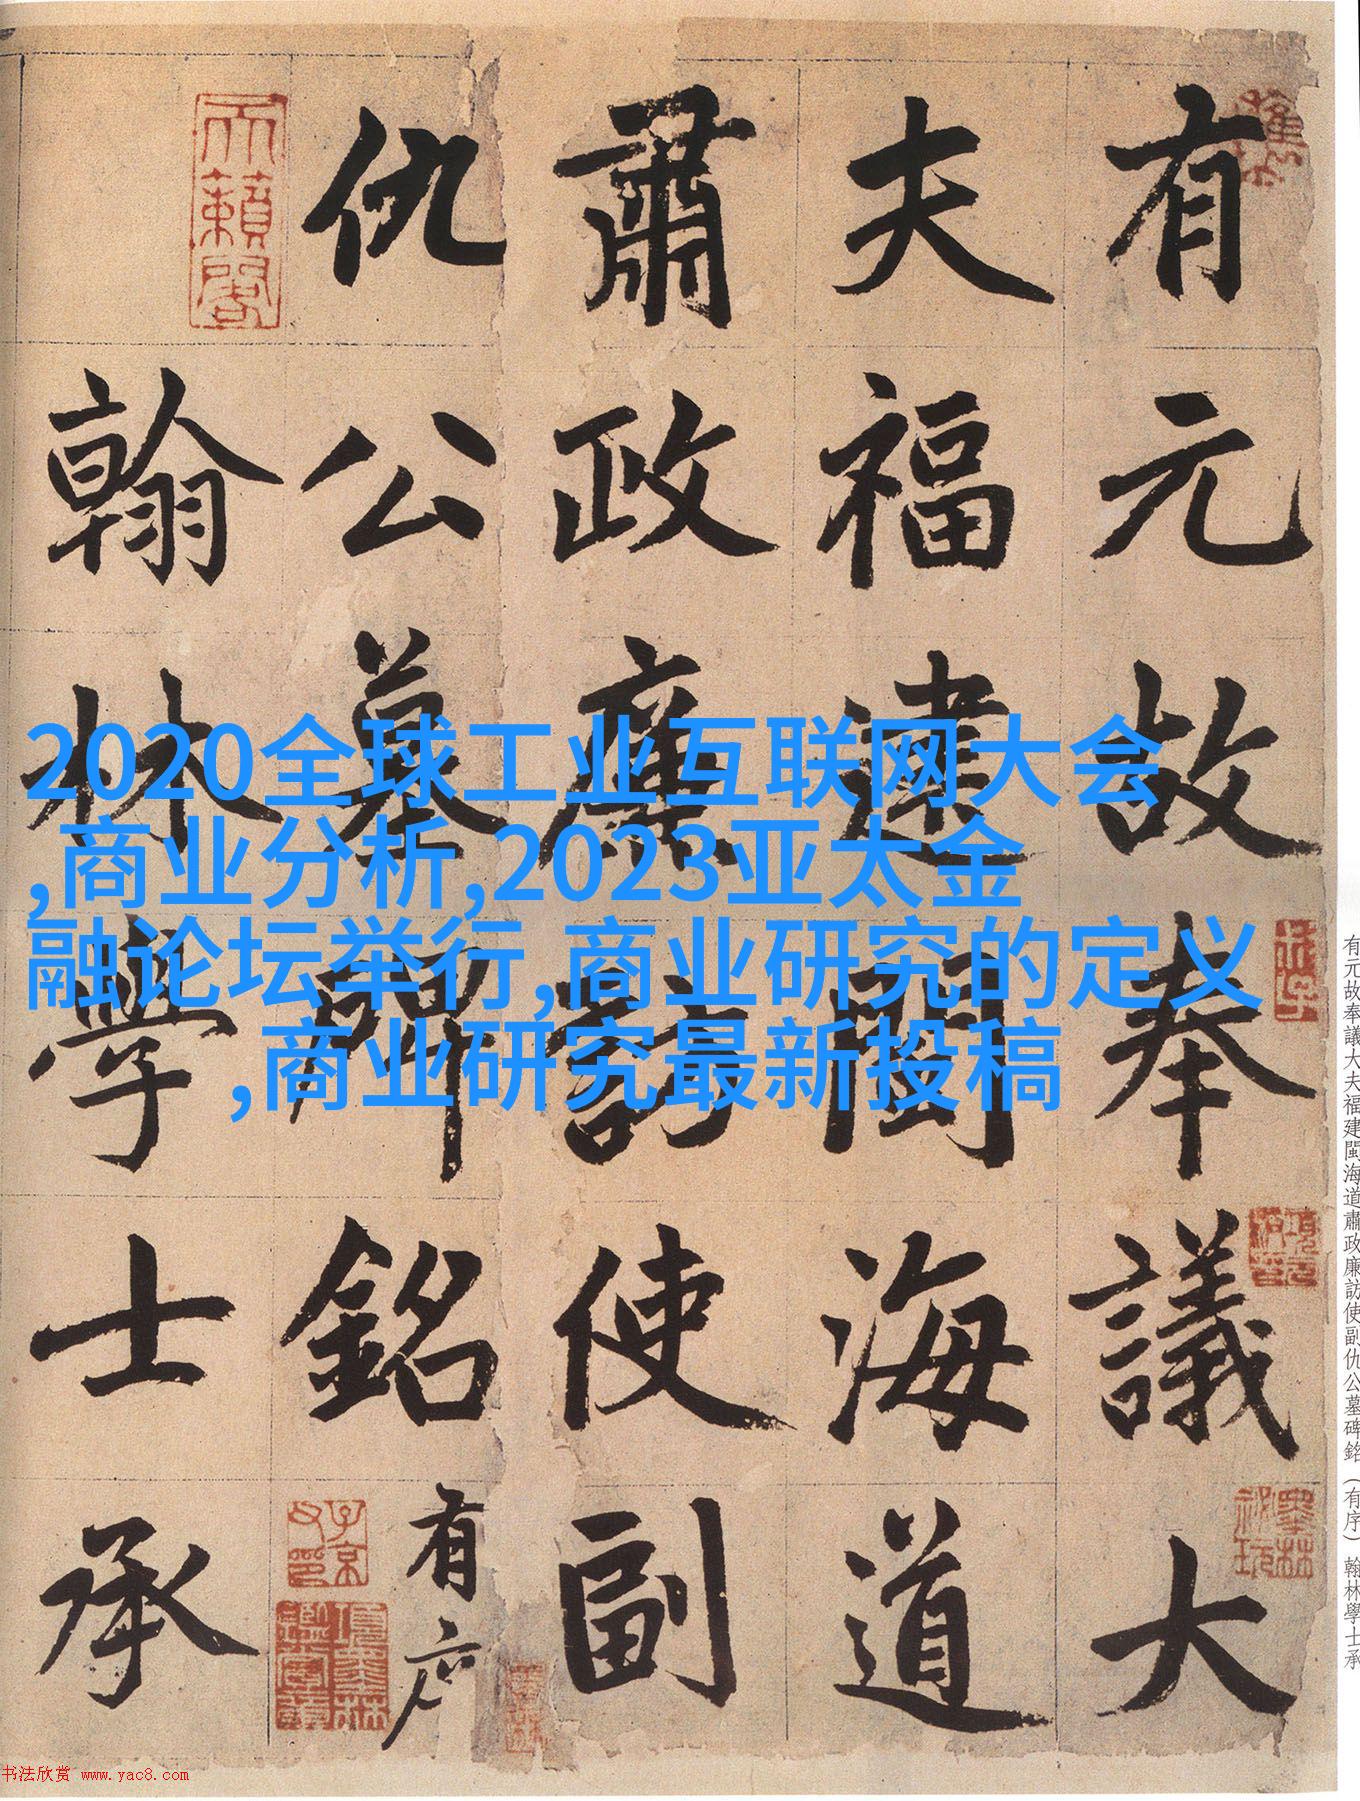 有元故奉議大夫福建閩海道肅政廉訪使副仇公墓碑銘（有序）翰林學士承
有元故奉議大
夫福建閩海道
肅政廉訪使副
仇公墓碑銘有序
翰林學士承
天籟閣
2020全球工业互联网大会
,商业分析,2023亚太金
融论坛举行,商业研究的定义
,商业研究最新投稿
子京父印
墨林祕玩
书法欣赏 www.yac8.com